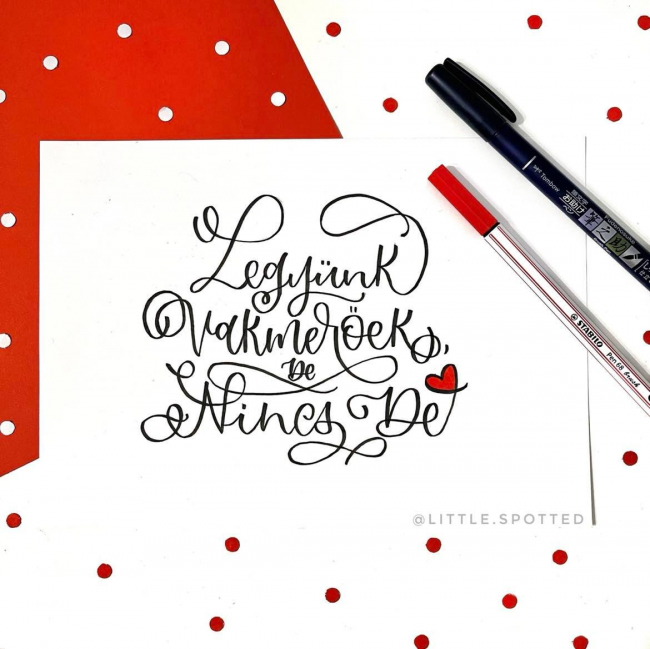 Legyünk
Vakmeröek,
De
Nincs De
Tombow
STABILO Pen 68 brush
@LITTLE.SPOTTED